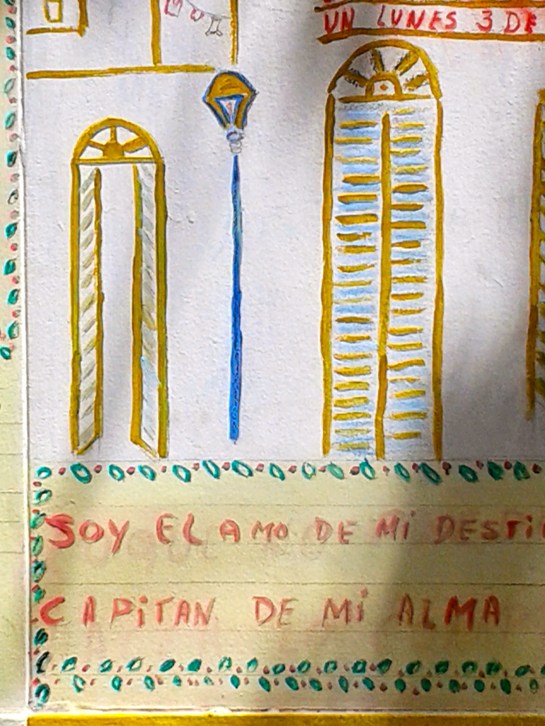 UN LUNES 3 DE
SOY EL AMO DE Mi DESTI
CAPiTAN DE Mi ALMA